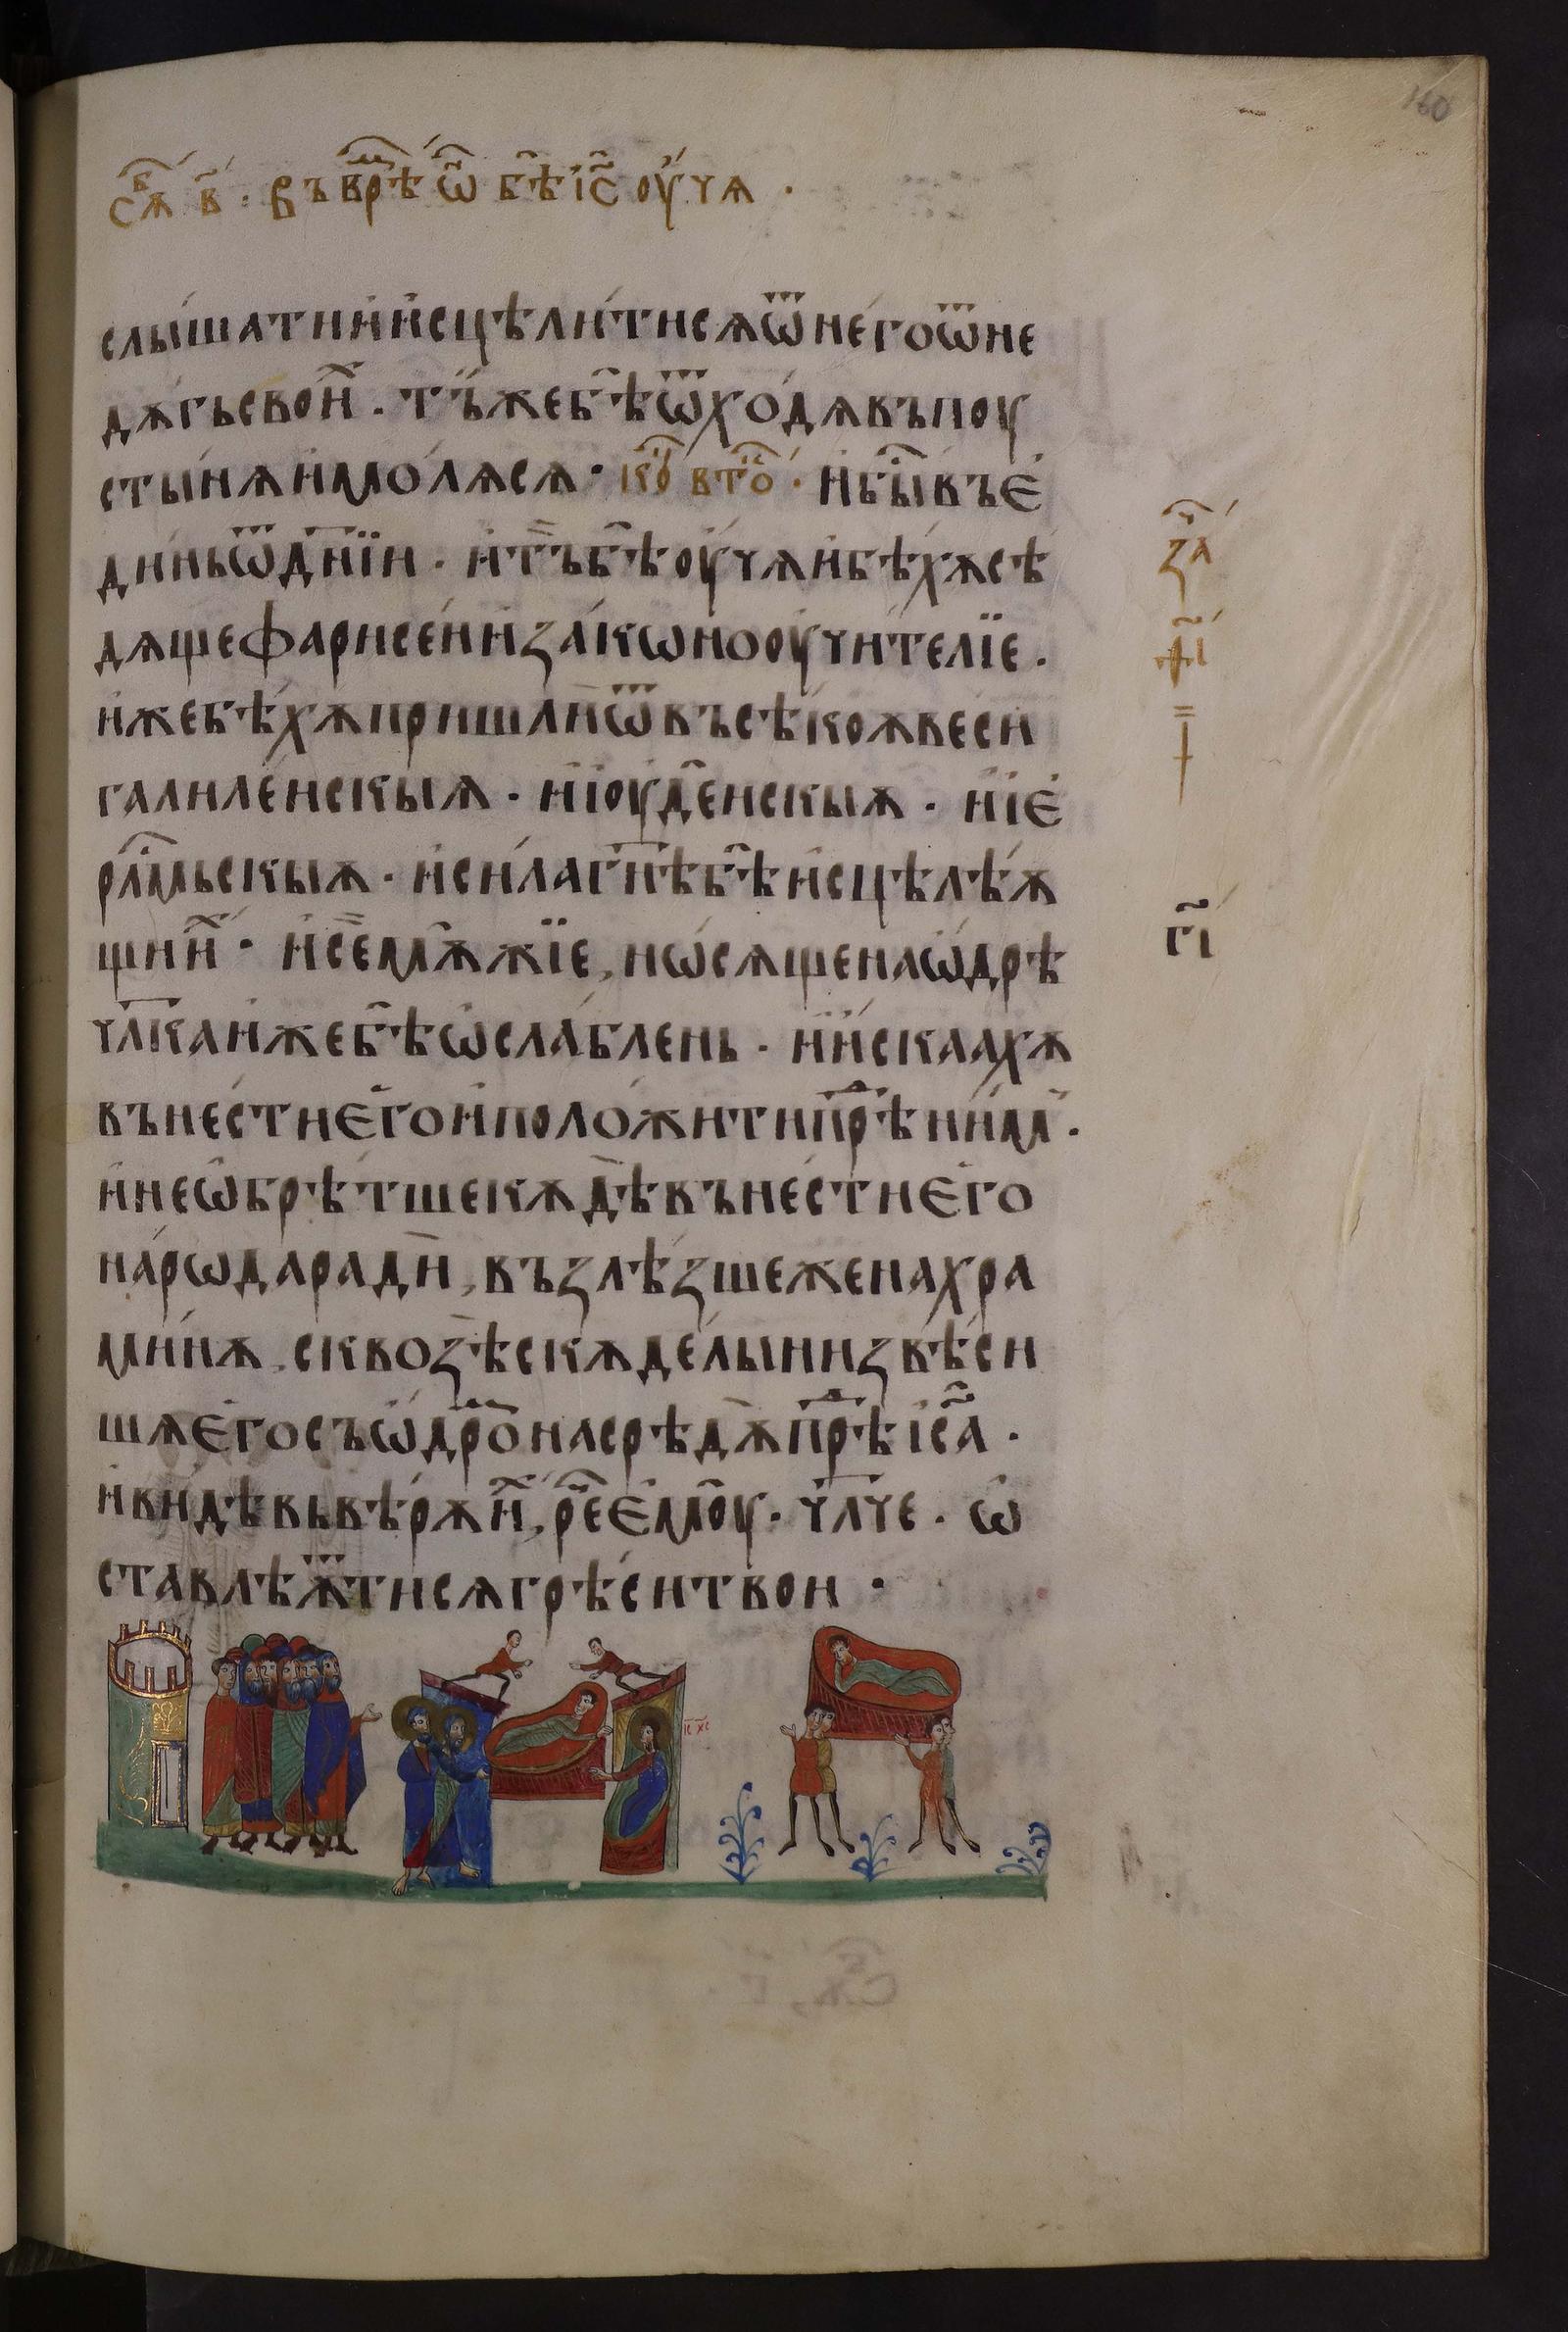 160
сѫ҃ в҃ · въ врѣ ѡ҃ бѣ і҃с оу҆чѧ ·
слы́шати и҆ и҆сцѣли́тисѧ ѿ не́го ѿ не
дѫ́гь свои́х · тъ́ же бѣ ѿхо́дѧ въ поу
сты́нѧ и҆ молѧсѧ · ко҃ вто́ · и҆ бы въ є҆
ди́нь ѿ дн҃їи · и҆ тъ бѣ оу҆чѧ и҆ бѣ́хѫ сѣ
дѧще фарисе́и и҆ зако́ноѹчи́телїе ·
и҆же бѣ́хѫ пришли ѿ въсѣкоѫ ве́си
галиле́искыѧ · и҆ і҆оуде́искыѧ · и҆ і҆є҆
рл҃мьскыѧ · и҆ си́ла гн҃ѣ бѣ и҆сцѣлѣ́ѫ
щи и҆х · и҆ се мѫжїе, но́сѧще на ѡ҆дрѣ
чл҃ка и҆же бѣ ѡ҆сла́блень · и҆ и҆скаахѫ
въне́сти є҆го и҆ положити прѣ ни́м ·
и҆ не ѡ҆брѣ́тше кѫдѣ въне́сти є҆го
на́рѡда ради, възлѣ́зше же на хра
ми́нѫ, сквозѣ скѫде́лы низвѣ́си
шѧ є҆го съ ѡ҆дро на срѣдѫ прѣ і҆с҃а ·
и҆ ви́дѣвь вѣ́рѫ и҆х, ре́ є҆моу · чл҃че · ѡ҆
ста́влѣѫтисѧ грѣ́си твои ·
за҃
ѳ҃і
гі҃
іс хс